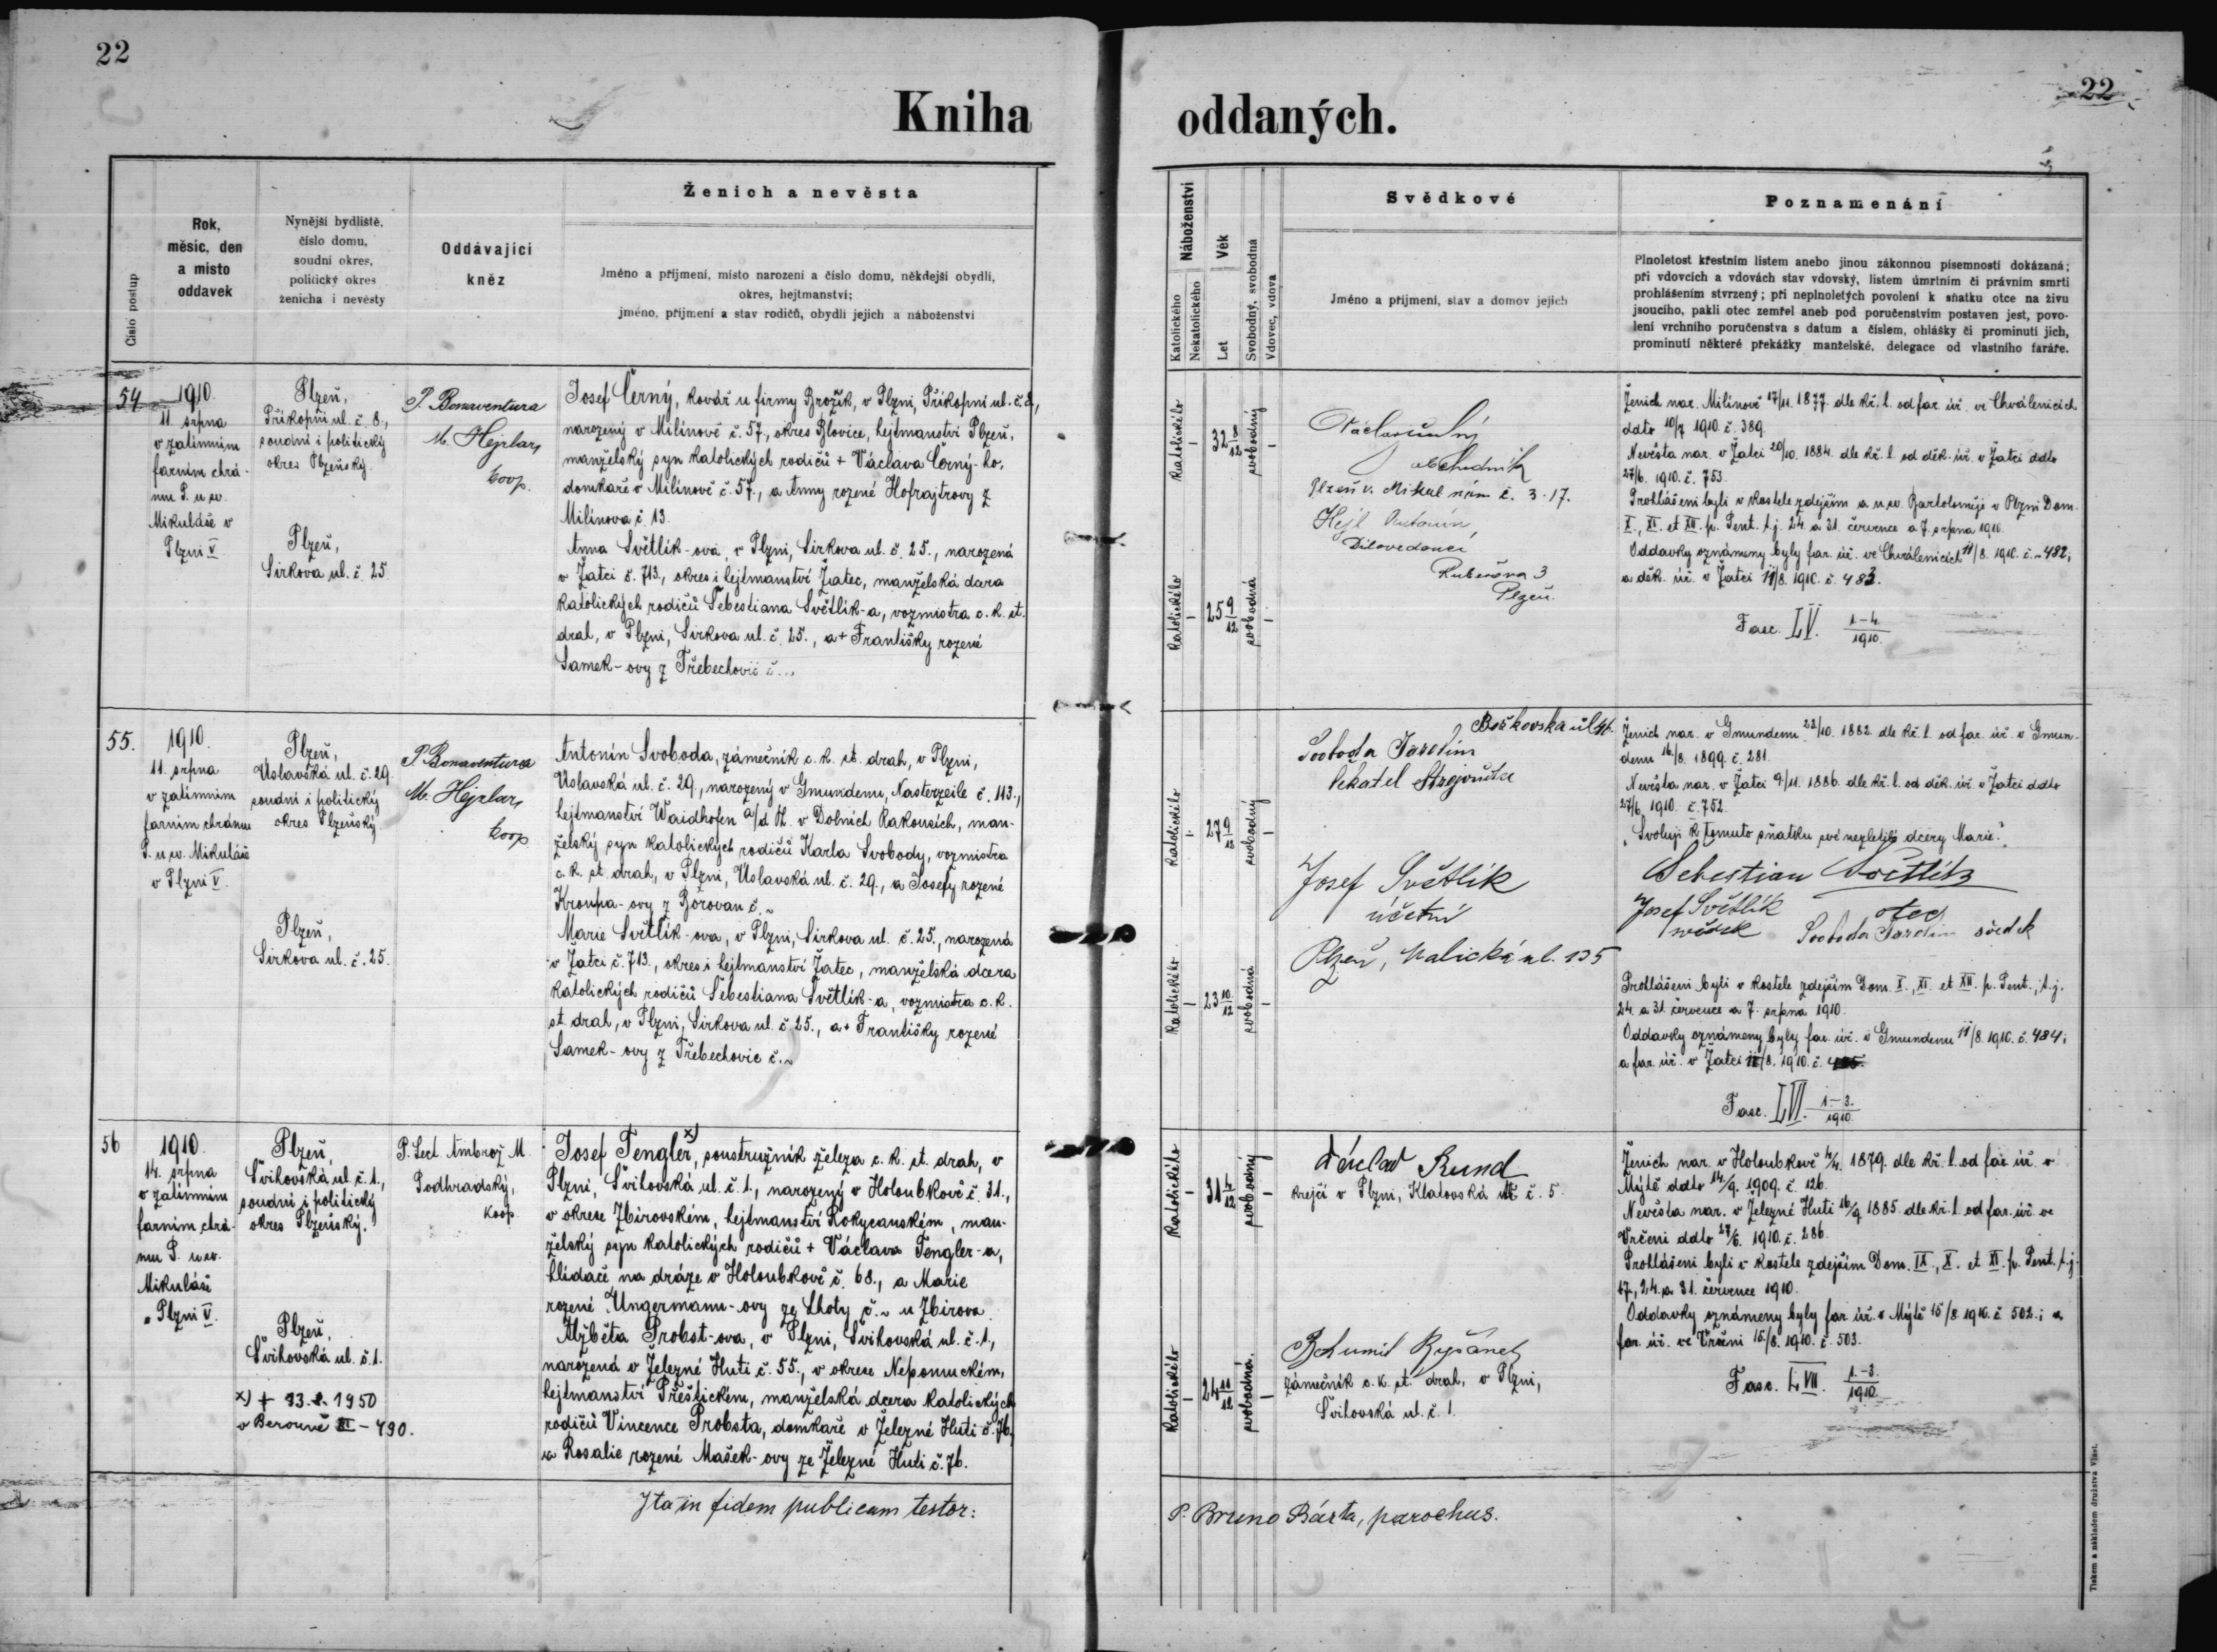 22
22
Kniha oddaných.
Číslo postup
Rok,
měsíc, den
a místo
oddavek
Nynější bydliště,
číslo domu,
soudní okres,
politický okres
ženicha i nevěsty
Oddávající
kněz
Ženich a nevěsta
Jméno a příjmení, místo narození a číslo domu, někdejší obydlí,
okres, hejtmanství;
jméno, příjmení a stav rodičů, obydlí jejich a náboženství
Náboženství
Katolického
Nekatolického
Věk
Let
Svobodný, svobodná
Vdovec, vdova
Svědkové
Jméno a příjmení, stav a domov jejich
Poznamenání
Plnoletost křestním listem anebo jinou zákonnou písemností dokázaná;
při vdovcích a vdovách stav vdovský, listem úmrtním či právním smrti
prohlášením stvrzený; při neplnoletých povolení k sňatku otce na živu
jsoucího, pakli otec zemřel aneb pod poručenstvím postaven jest, povo-
lení vrchního poručenstva s datum a číslem, ohlášky či prominutí jich,
prominutí některé překážky manželské, delegace od vlastního faráře.
54
1910.
11. srpna
v zatímním
farním chrá-
mu P. u sv.
Mikuláše v
Plzni V.
Plzeň,
Příkopní ul. č. 8.,
soudní i politický
okres Plzeňský.
Plzeň,
Sirkova ul. č. 25.
P. Bonaventura
M. Hejzlar,
coop.
Josef Černý, kovář u firmy Brožík, v Plzni, Příkopní ul. č. 8.,
narozený v Milínově č. 57., okres Blovice, hejtmanství Plzeň,
manželský syn katolických rodičů + Václava Černý-ho,
domkaře v Milínově č. 57., a Anny rozené Hofrajtrovy z
Milínova č. 13.
Anna Světlík-ova, v Plzni, Sirkova ul. č. 25., narozená
v Žatci č. 713., okres i hejtmanství Žatec, manželská dcera
katolických rodičů Šebestiana Světlík-a, vozmistra c. k. st.
drah, v Plzni, Sirkova ul. č. 25., a + Františky rozené
Samek-ovy z Třebechovic č...
Katolického
32 8/12
svobodný
Katolického
25 9/12
svobodná
obchodník
Plzeň v. Mikul nám č. 3. 17.
Hejl Antonín
Dílovedoucí
Plzeň.
Ženich nar. Milínově 17/11. 1877. dle kř. l. od far. úř. ve Chválenicích
ddto 10/7 1910. č. 389.
Nevěsta nar. v Žatci 20/10. 1884. dle kř. l. od děk. úř. v Žatci ddto
27/6. 1910. č. 753.
Prohlášeni byli v kostele zdejším a u sv. Bartoloměje v Plzni Dom.
X., XI. et XII. p. Pent. t. j. 24. a 31. července a 7. srpna 1910.
Oddavky oznámeny byly far. úř. ve Chválenicích 11/8. 1910. č. 482;
a děk. úř. v Žatci 11/8. 1910. č. 483.
Fasc. LV. 1-4. 1910.
55.
1910.
11. srpna
v zatímním
farním chrámu
P. u sv. Mikuláše
v Plzni V.
Plzeň,
Úslavská ul. č. 29.
soudní i politický
okres Plzeňský.
Plzeň,
Sirkova ul. č. 25.
P. Bonaventura
M. Hejzlar,
coop
Antonín Svoboda, zámečník c. k. st. drah, v Plzni,
Úslavská ul. č. 29., narozený v Gmundenu, Nasterzeile č. 113.,
hejtmanství Waidhofen a/d H. v Dolních Rakousích, man-
želský syn katolických rodičů Karla Svobody, vozmistra
c. k. st. drah, v Plzni, Úslavská ul. č. 29., a Josefy rozené
Kroupa-ovy z Borovan č. ~
Marie Světlík-ova, v Plzni, Sirkova ul. č. 25., narozená
v Žatci č. 713., okres i hejtmanství Žatec, manželská dcera
katolických rodičů Šebestiana Světlík-a, vozmistra c. k.
st. drah, v Plzni, Sirkova ul. č. 25., a + Františky rozené
Samek-ovy z Třebechovic č. ~
Katolického
27 9/12
svobodný
Katolického
23 10/12
svobodná
Svoboda Jarolím
Josef Světlík
účetní
Plzeň, Malická ul. 135
Ženich nar. v Gmundenu 22/10. 1882. dle kř. l. od far. úř. v Gmun-
denu 16/8. 1899. č. 281.
Nevěsta nar. v Žatci 9/11. 1886. dle kř. l. od děk. úř. v Žatci ddto
27/6. 1910. č. 752.
„Svoluji k tomuto sňatku své nezletilé dcery Marie."
Sebestian Světlík
otec
Josef Světlík
svědek
Svoboda Jarolím svědek
Prohlášeni byli v kostele zdejším Dom. X., XI. et XII. p. Pent., t. j.
24. a 31. července a 7. srpna 1910.
Oddavky oznámeny byly far. úř. v Gmundenu 11/8. 1910. č. 484;
a far. úř. v Žatci 11/8. 1910. č.
Fasc. LVI. 1.-3. 1910.
56
1910.
14. srpna
v zatímním
farním chrá-
mu P. u sv.
Mikuláše
v Plzni V.
Plzeň,
Švihovská ul. č. 1.,
soudní i politický
okres Plzeňský.
Plzeň,
Švihovská ul. č. 1.
x) + 23. 2. 1950
v Berouně II - 490.
P. Lect. Ambrož M.
Podhradský,
koop.
Josef Tengler, x) soustružník železa c. k. st. drah, v
Plzni, Švihovská ul. č. 1., narozený v Holoubkově č. 31.,
v okrese Zbirovském, hejtmanství Rokycanském, man-
želský syn katolických rodičů + Václava Tengler-a,
hlídače na dráze v Holoubkově č. 68., a Marie
rozené Ungermann-ovy ze Lhoty č. ~ u Zbirova.
Alžběta Probst-ova, v Plzni, Švihovská ul. č. 1.,
narozená v Železné Huti č. 55., v okrese Nepomuckém,
hejtmanství Přeštickém, manželská dcera katolických
rodičů Vincence Probsta, domkaře v Železné Huti č. 76.,
a Rosalie rozené Mašek-ovy ze Železné Huti č. 76.
Katolického
31 4/12
svobodný
Katolického
24 11/12
svobodná.
Václav Rund
krejčí v Plzni, Klatovská tř. č. 5.
Bohumil Ryšánek
zámečník c. k. st. drah, v Plzni,
Švihovská ul. č. 1.
Ženich nar. v Holoubkově 4/4. 1879. dle kř. l. od far. úř. v
Mýtě ddto 14/9. 1909. č. 126.
Nevěsta nar. v Železné Huti 16/9 1885. dle kř. l. od far. úř. ve
Vrčeni ddto 27/6. 1910. č. 286.
Prohlášeni byli v kostele zdejším Dom. IX., X. et XI. p. Pent. t. j.
17., 24. a 31. července 1910.
Oddavky oznámeny byly far. úř. v Mýtě 15/8. 1910. č. 502.; a
far. úř. ve Vrčeni 15/8. 1910. č. 503.
Fasc. LVII. 1.-3. 1910.
Ita in fidem publicam testor:
P. Bruno Bárta, parochus.
Tiskem a nákladem družstva Vlast.